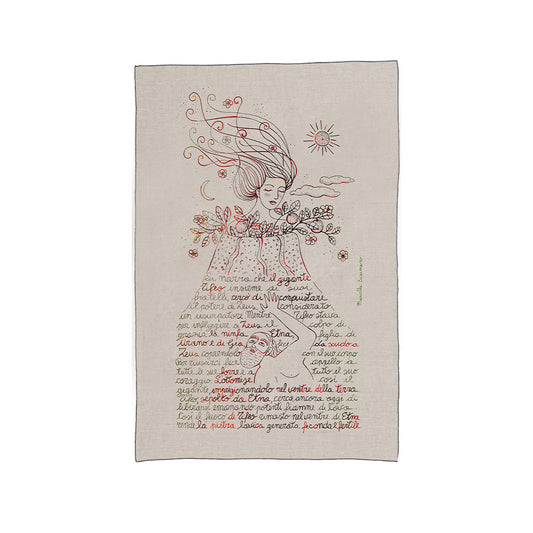 Si narra che il gigante
Tifeo insieme ai suoi
fratelli, cercò di conquistare
il potere di Zeus, considerato
un usurpatore. Mentre Tifeo stava
per infliggere a Zeus il colpo di
grazia la ninfa Etna figlia di
Urano e di Gea, fece da scudo a
Zeus coprendolo con il suo corpo
Per riuscirci fece appello a
tutte le sue forze e a tutto il suo
coraggio. Sottomise così il
gigante imprigionandolo nel ventre della terra
Tifeo, sepolto da Etna cerca ancora oggi di
liberarsi emanando potenti fiamme di lava
Così il fuoco di Tifeo rimasto nel ventre di Etna
rende la pietra lavica generata feconda e fertile